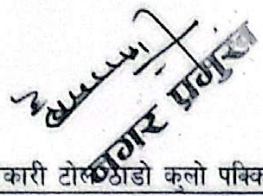 नगर प्रमुख
कारी टोल ठाडो कुलो पक्कि